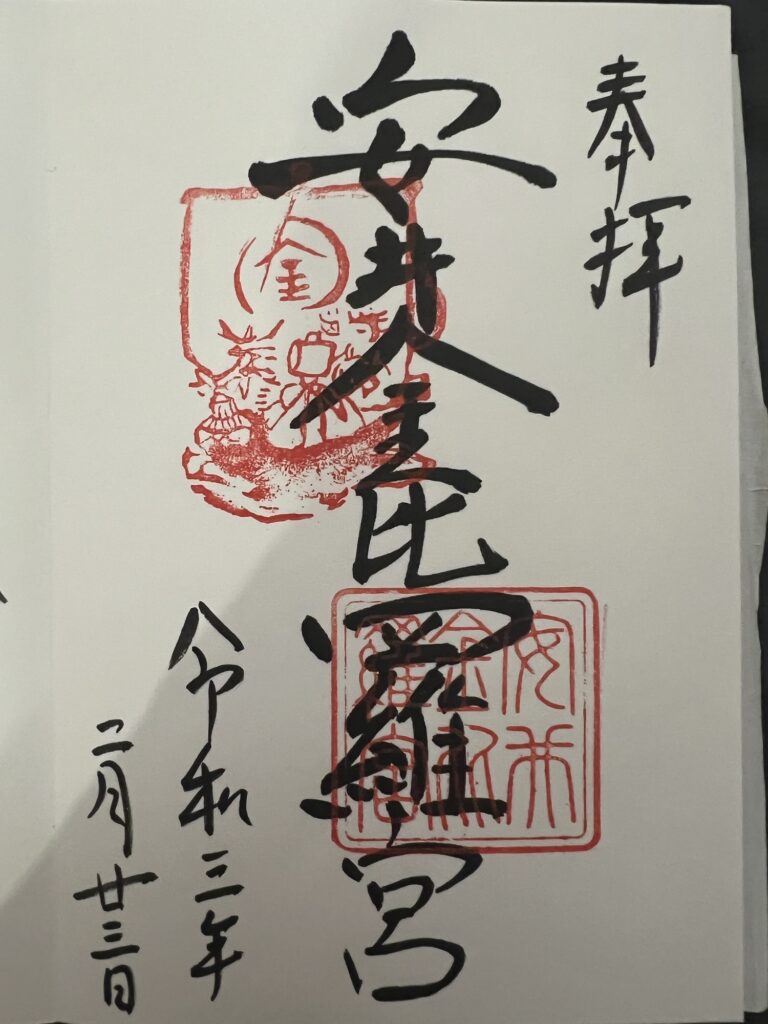 奉拝
安井金比羅宮
令和三年
二月廿三日
金
安井
金比
羅宮